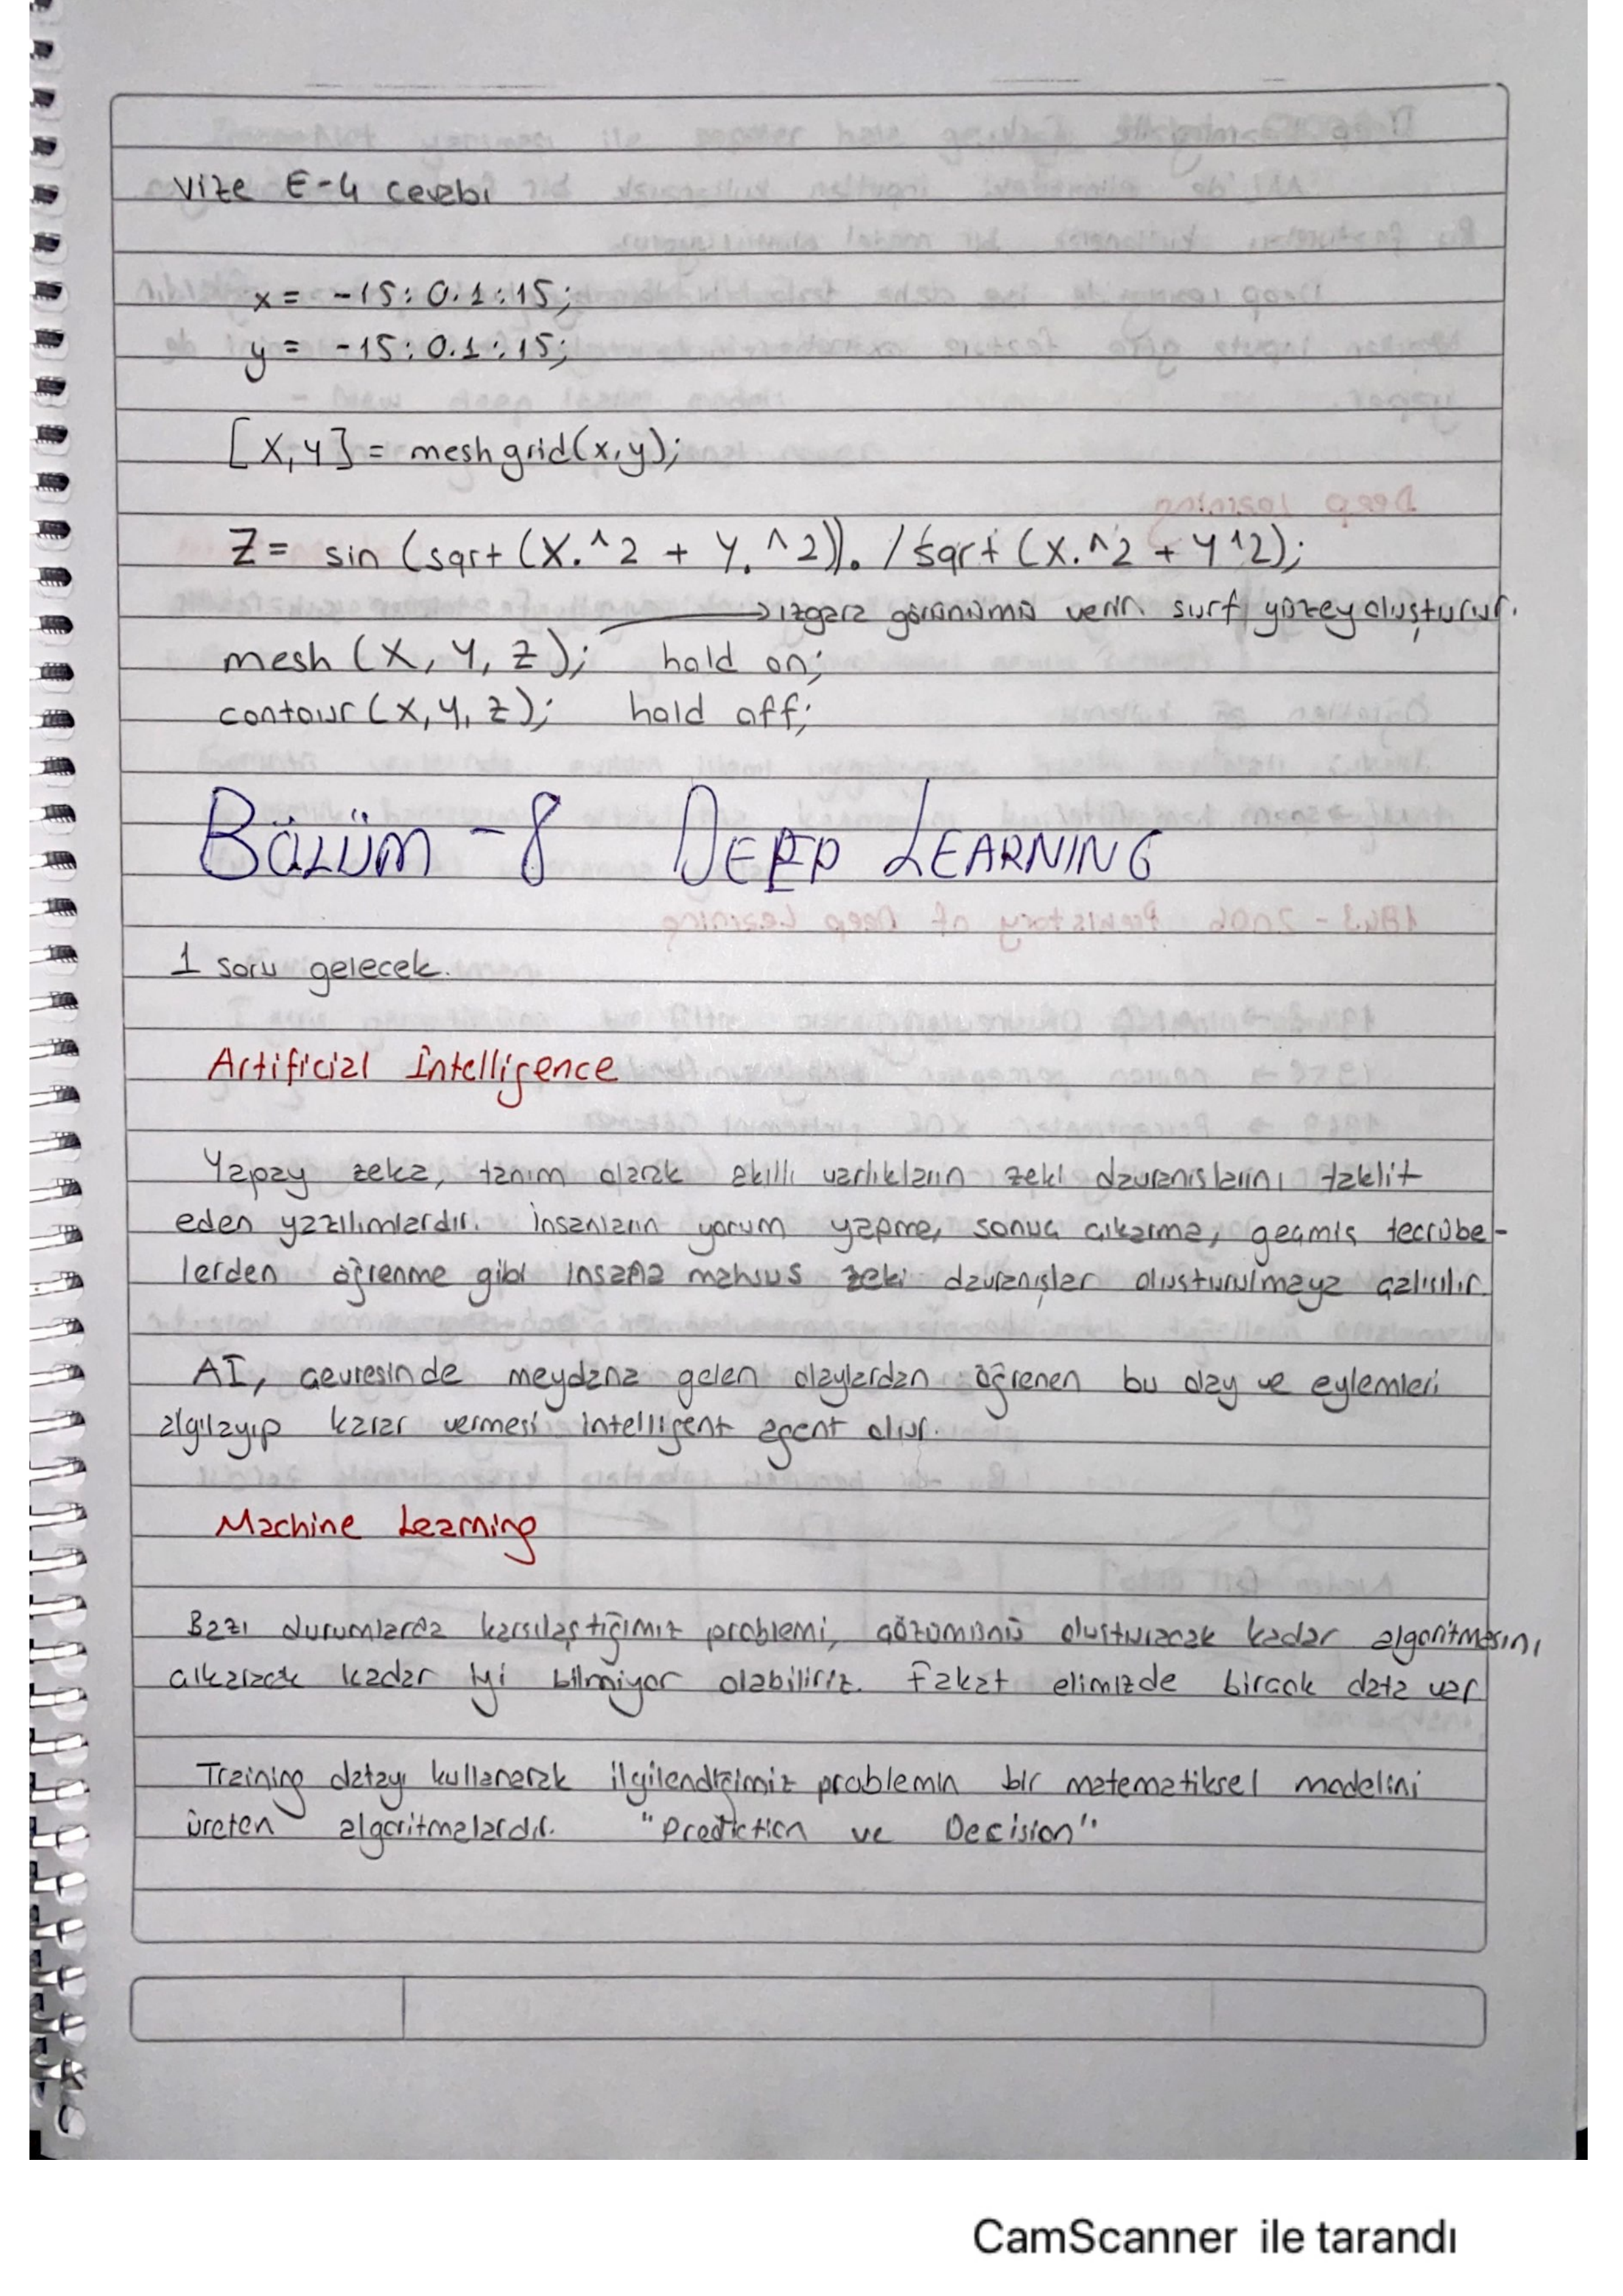 Vize E-4 cevabı
x = -15:0.1:15;
y = -15:0.1:15;
[X,Y] = meshgrid(x,y);
Z = sin(sqrt(X.^2 + Y.^2))./sqrt(X.^2 + Y^2);
→ızgara görünümü verir. surf yüzey oluşturur.
mesh(X,Y,Z); hold on;
contour(X,Y,Z); hold off;
BÖLÜM-8 DEEP LEARNING
1 soru gelecek.
Artificial İntelligence
Yapay zeka, tanım olarak akıllı varlıkların zeki davranışlarını taklit
eden yazılımlardır. İnsanların yorum yapma, sonuç çıkarma, geçmiş tecrübe-
lerden öğrenme gibi insana mahsus zeki davranışlar oluşturulmaya çalışılır
AI, çevresinde meydana gelen olaylardan öğrenen bu olay ve eylemleri
algılayıp karar vermesi intelligent agent olur.
Machine Learning
Bazı durumlarda karşılaştığımız problemi, çözümünü oluşturacak kadar algoritmasını
çıkaracak kadar iyi bilmiyor olabiliriz. Fakat elimizde birçok data var
Training datayı kullanarak ilgilendiğimiz problemin bir matematiksel modelini
üreten algoritmalardır. "Prediction ve Decision"
CamScanner ile tarandı